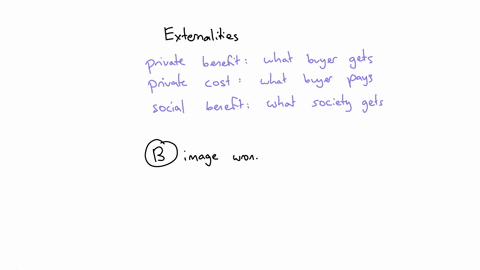 Externalities
private benefit: what buyer gets
private cost: what buyer pays
social benefit: what society gets
B image won.